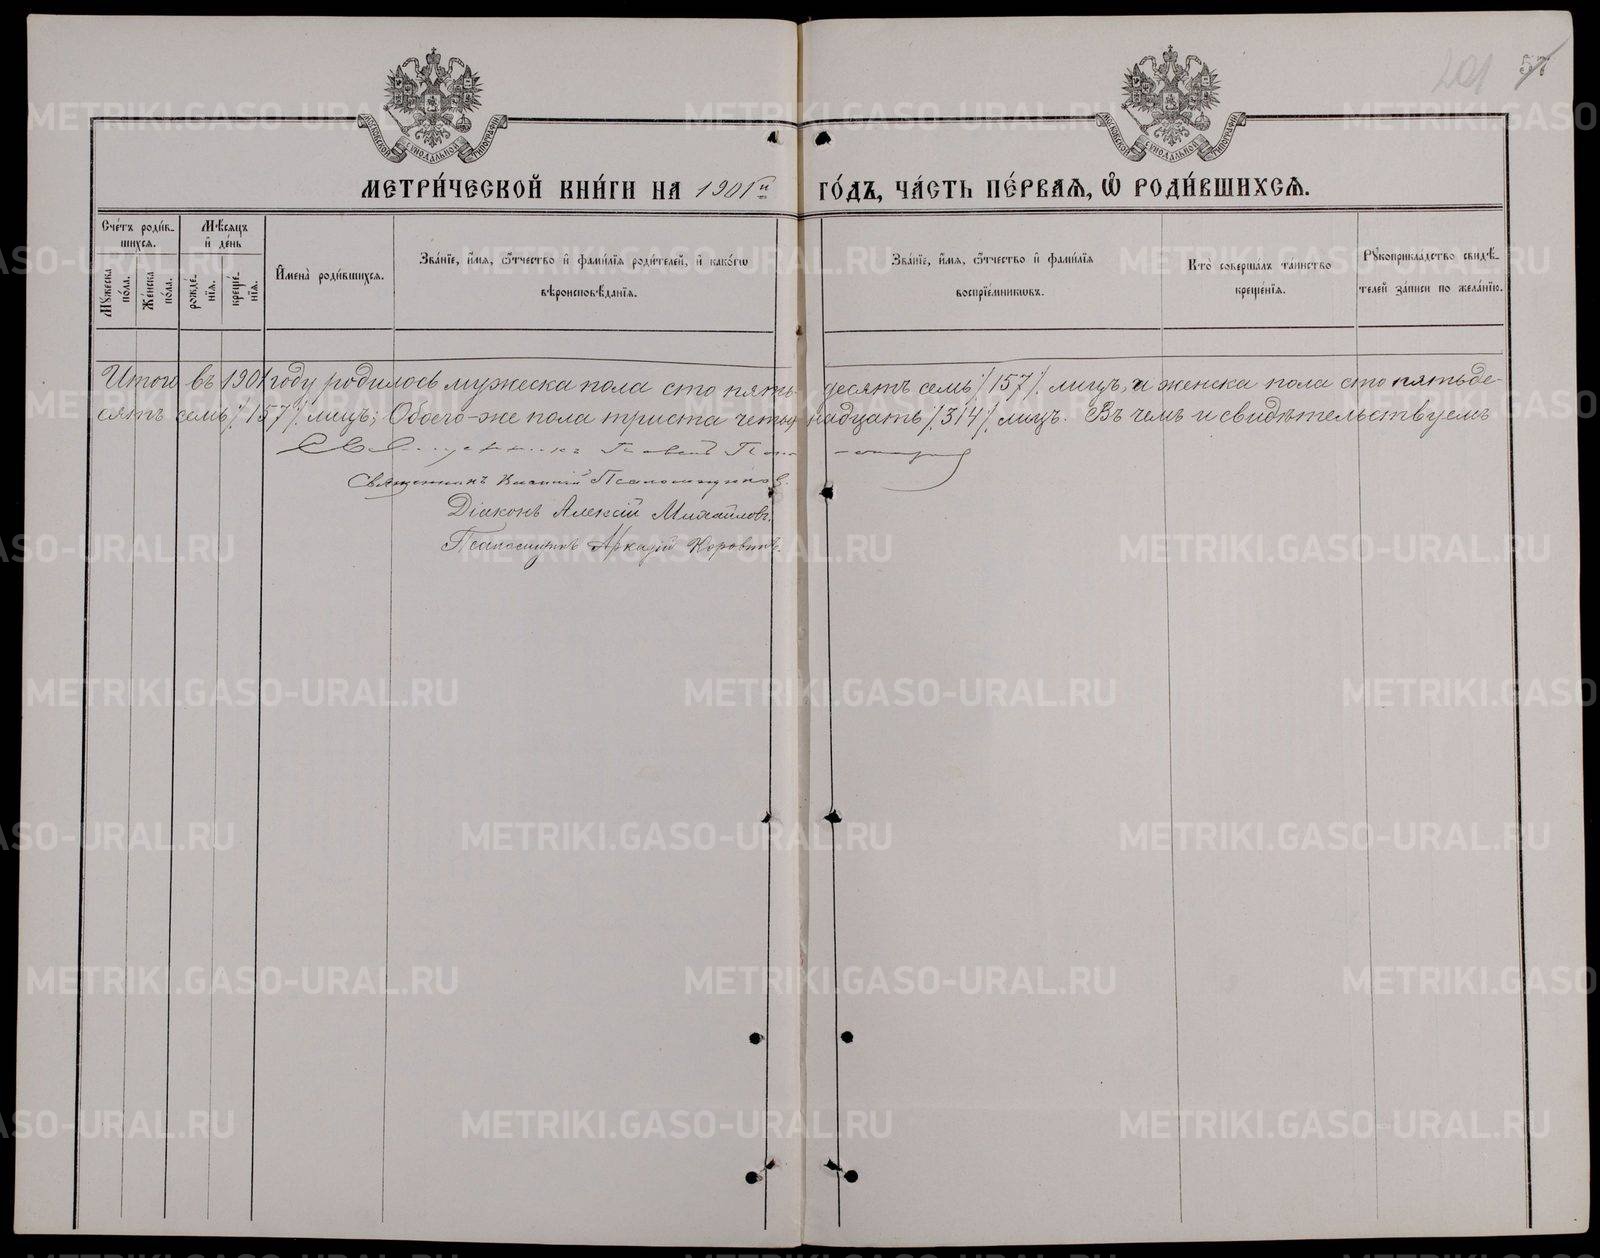 201 57
МОСКОВСКОЙ СѴНОДАЛЬНОЙ ТИПОГРАФІИ
МОСКОВСКОЙ СѴНОДАЛЬНОЙ ТИПОГРАФІИ
МЕТРИ́ЧЕСКОЙ КНИ́ГИ НА 1901й ГО́ДЪ, ЧА́СТЬ ПЕ́РВАѦ, Ѽ РОДИ́ВШИХСѦ.
Сче́тъ роди́в-
шихся.
Мѣ́сяцъ
и҆ де́нь
Мꙋжеска по́ла.
Же́нска по́ла.
рожде́-
нїя.
креще́-
нїя.
И҆мена̀ роди́вшихся.
Зва́нїе, и҆́мя, ѻ҆́тчество и҆ фами́лїя роди́телей, и҆ како́гѡ
вѣроисповѣ́данїя.
Зва́нїе, и҆́мя, ѻ҆́тчество и҆ фами́лїя
воспрїе́мникѡвъ.
Кто̀ соверша́лъ та́инство
креще́нїя.
Рꙋкоприкла́дство свидѣ́-
телей за́писи по жела́нїю.
Итого въ 1901 году родилось мужеска пола сто пять- десятъ семь /157/ лицъ, и женска пола сто пятьде-
сятъ семь /157/ лицъ; Обоего-же пола триста четыр надцать /314/ лицъ. Въ чемъ и свидѣтельствуемъ
Священникъ
Священникъ
Діаконъ Алексій Михайловъ.
Псаломщикъ Аркадій Коровинъ.
METRIKI.GASO-URAL.RU